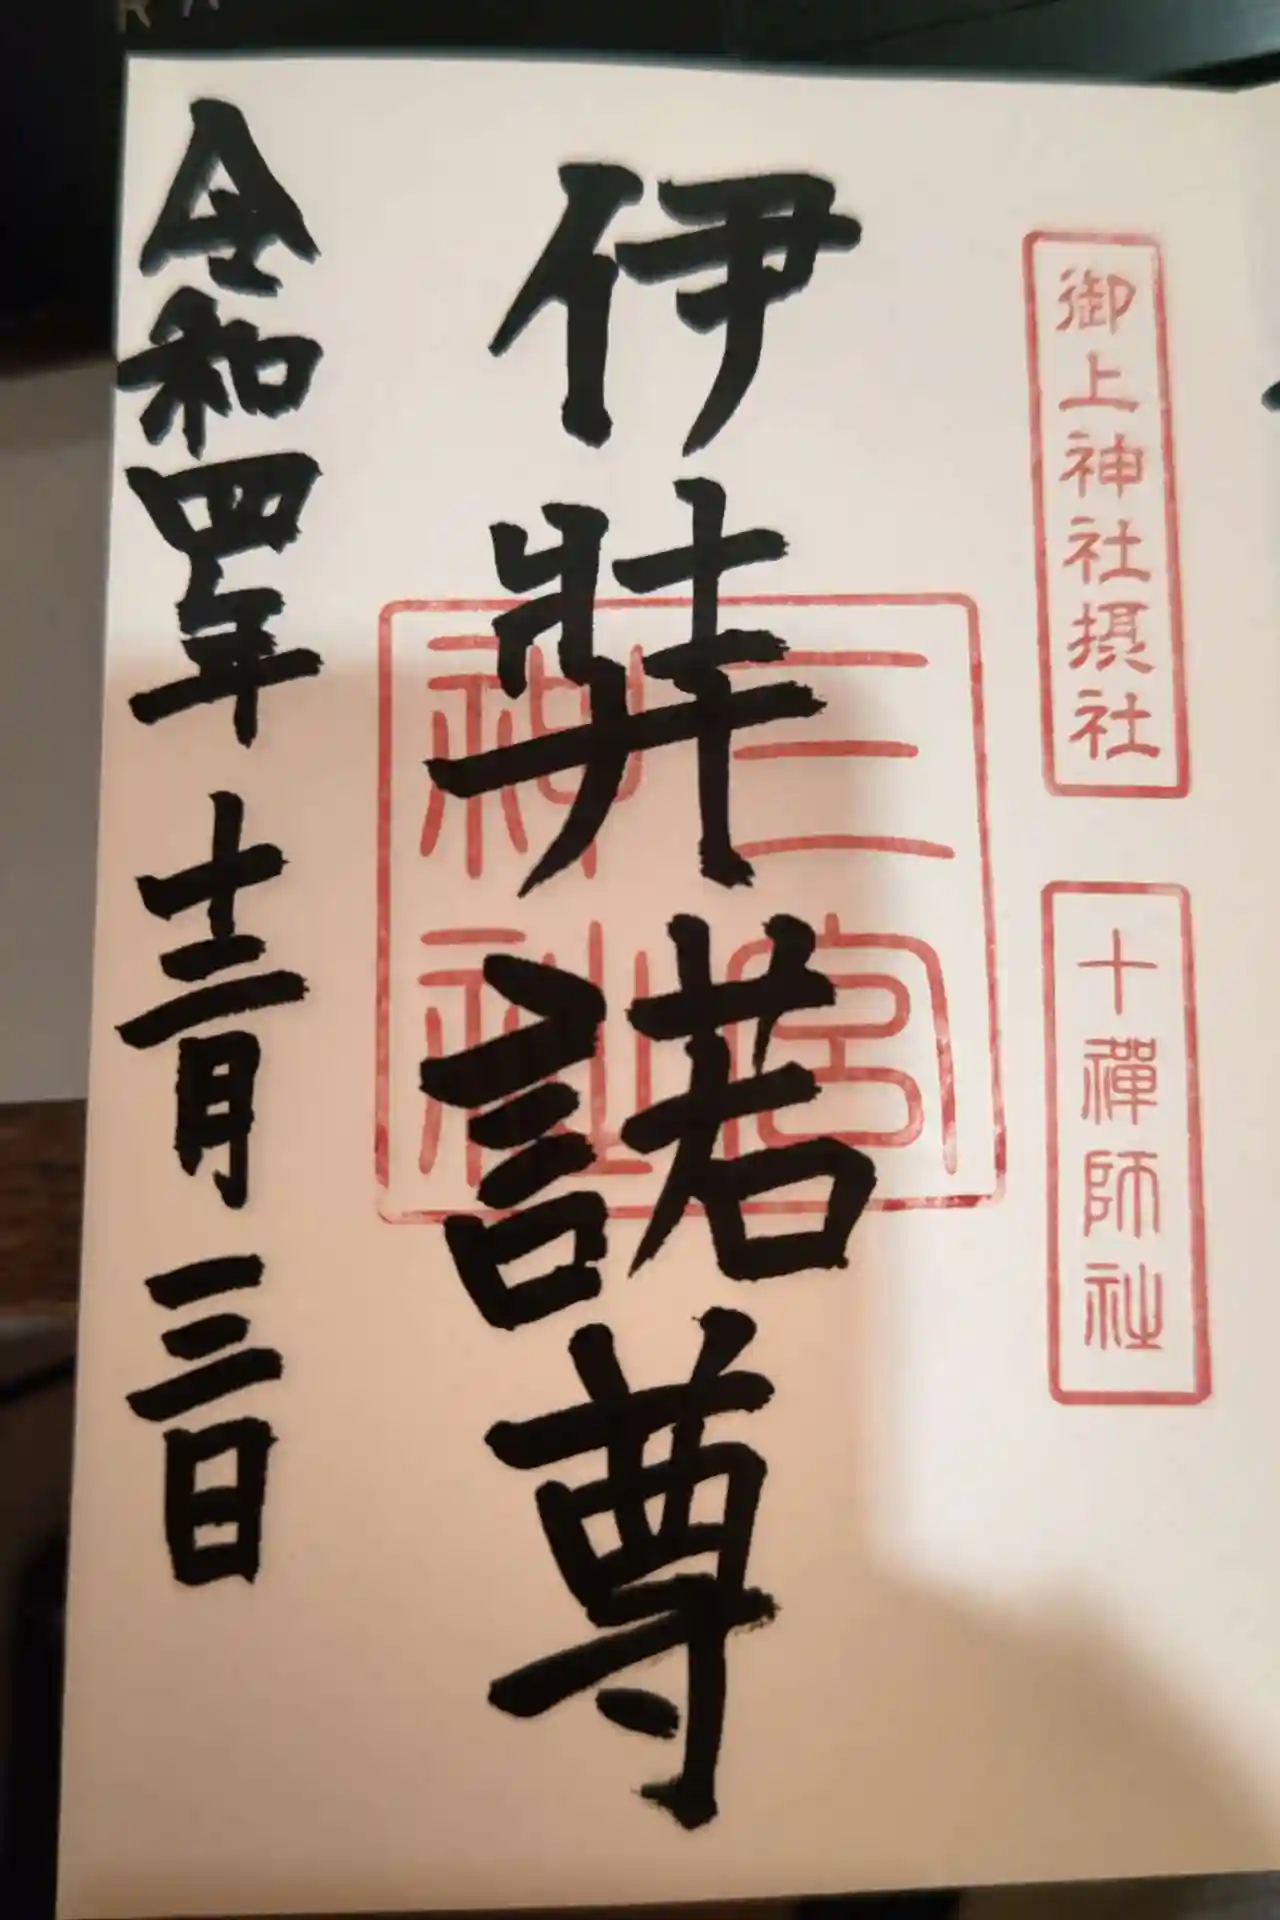 御上神社摂社
十禅師社
伊弉諾尊
三宮
神社
令和四年十二月三日